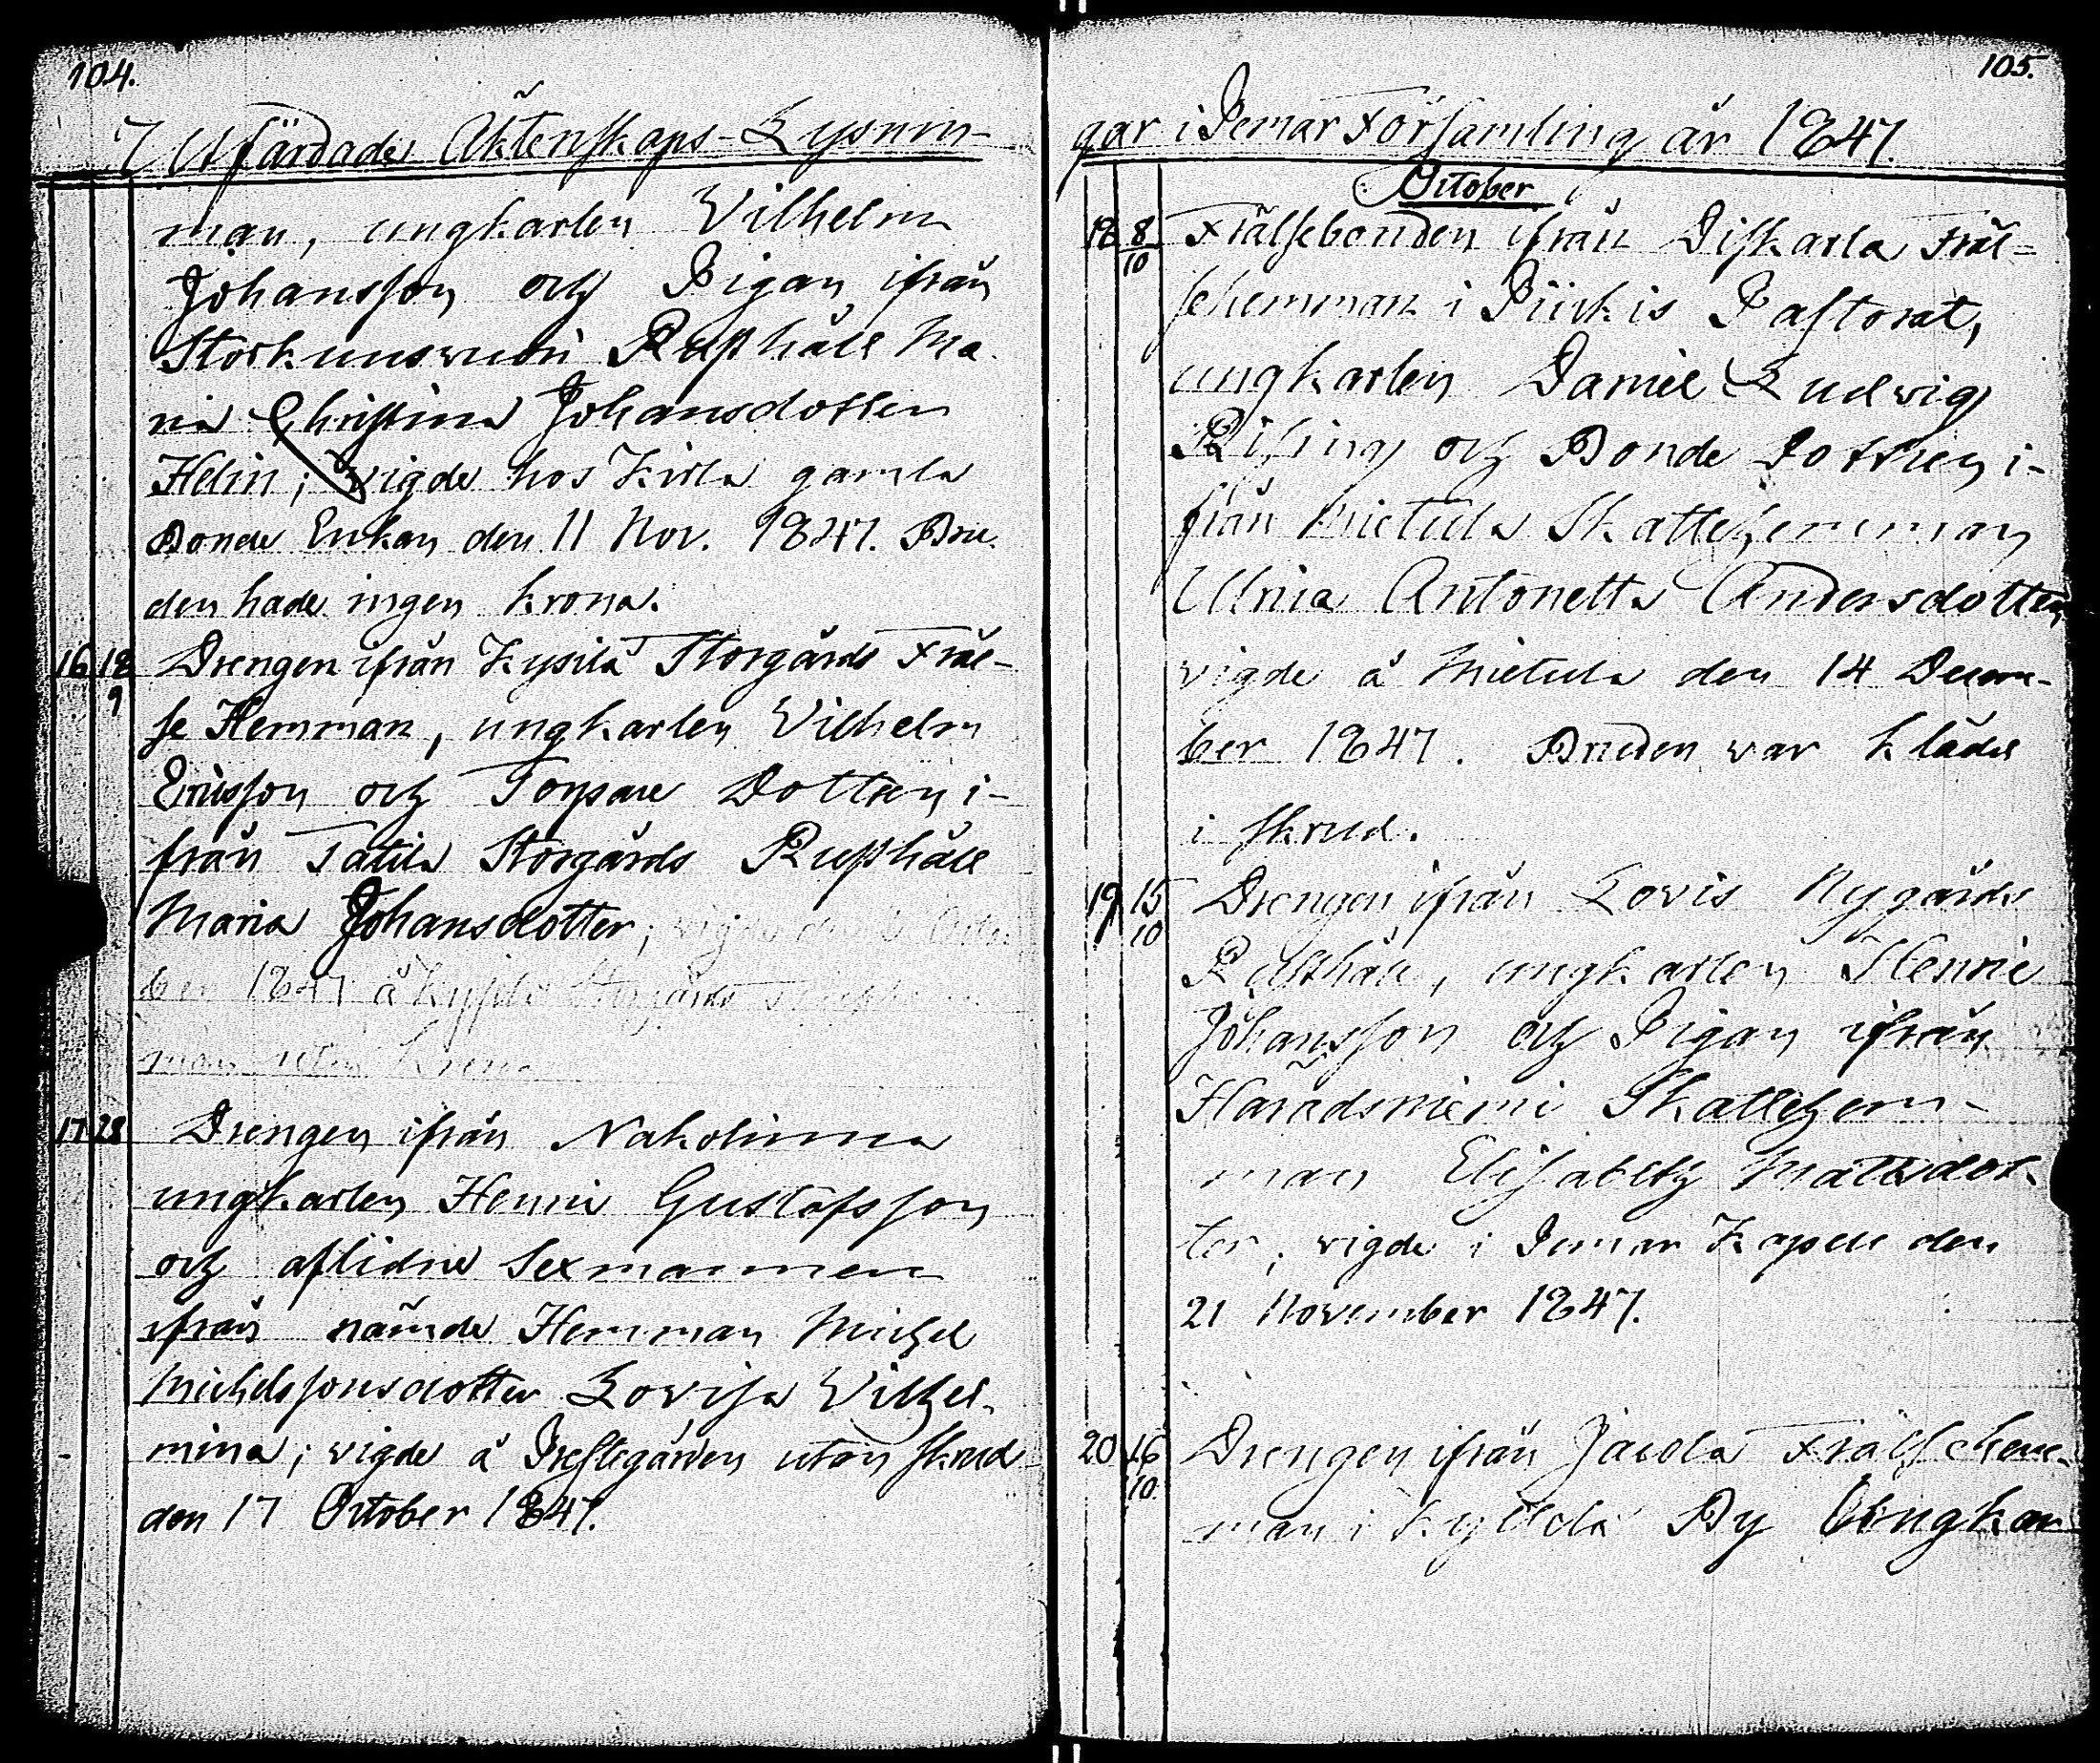 104.
Utfärdade Äktenskaps-Lysnin-
man, ungkarlen Vilhelm
Johansson och Pigan ifrån
Rusthåll Ma-
ria Christina Johansdotter
Helin; vigde hos Kirla gamla
Bonde Enkan den 11 Nov. 1847. Bru-
den hade ingen krona.
16 18/9 Drengen ifrån Kysilä Storgårds Fräl-
se Hemman, ungkarlen Vilhelm
Ericsson och Torpare Dottren i-
från Tatila Storgårds Rusthåll
Maria Johansdotter; vigde den
ber 1847 å Storgårds
man utan krona
17 28 Drengen ifrån Nakolinna
ungkarlen Henric Gustafsson
och aflidne Sexmannen
ifrån nämde Hemman Michel
Michelssonsdotter Lovisa Vilhel-
mina; vigde å Prestegården utan skrud
den 17 October 1847.
105.
gar i Pemar Församling år 1847.
October
18 8/10 Frälsebonden ifrån Diskarla Fräl-
sehemman i Piikkis Pastorat,
ungkarlen Daniel Ludvig
och Bonde Dottren i-
från Mietula Skattehemman
Ulrica Antonetta Andersdotter
vigde å Mietula den 14 Decem-
ber 1847. Bruden var klädd
i skrud.
19 15/10 Drengen ifrån Lovis Nygårds
Rusthåll, ungkarlen Henric
Johansson och Pigan ifrån
Haradsniemi Skattehem-
man Elisabeth Mattsdot-
ter, vigde i Pemar Kapell den
21 November 1847.
20 16/10 Drengen ifrån Frälsehem-
man i By Ungkar